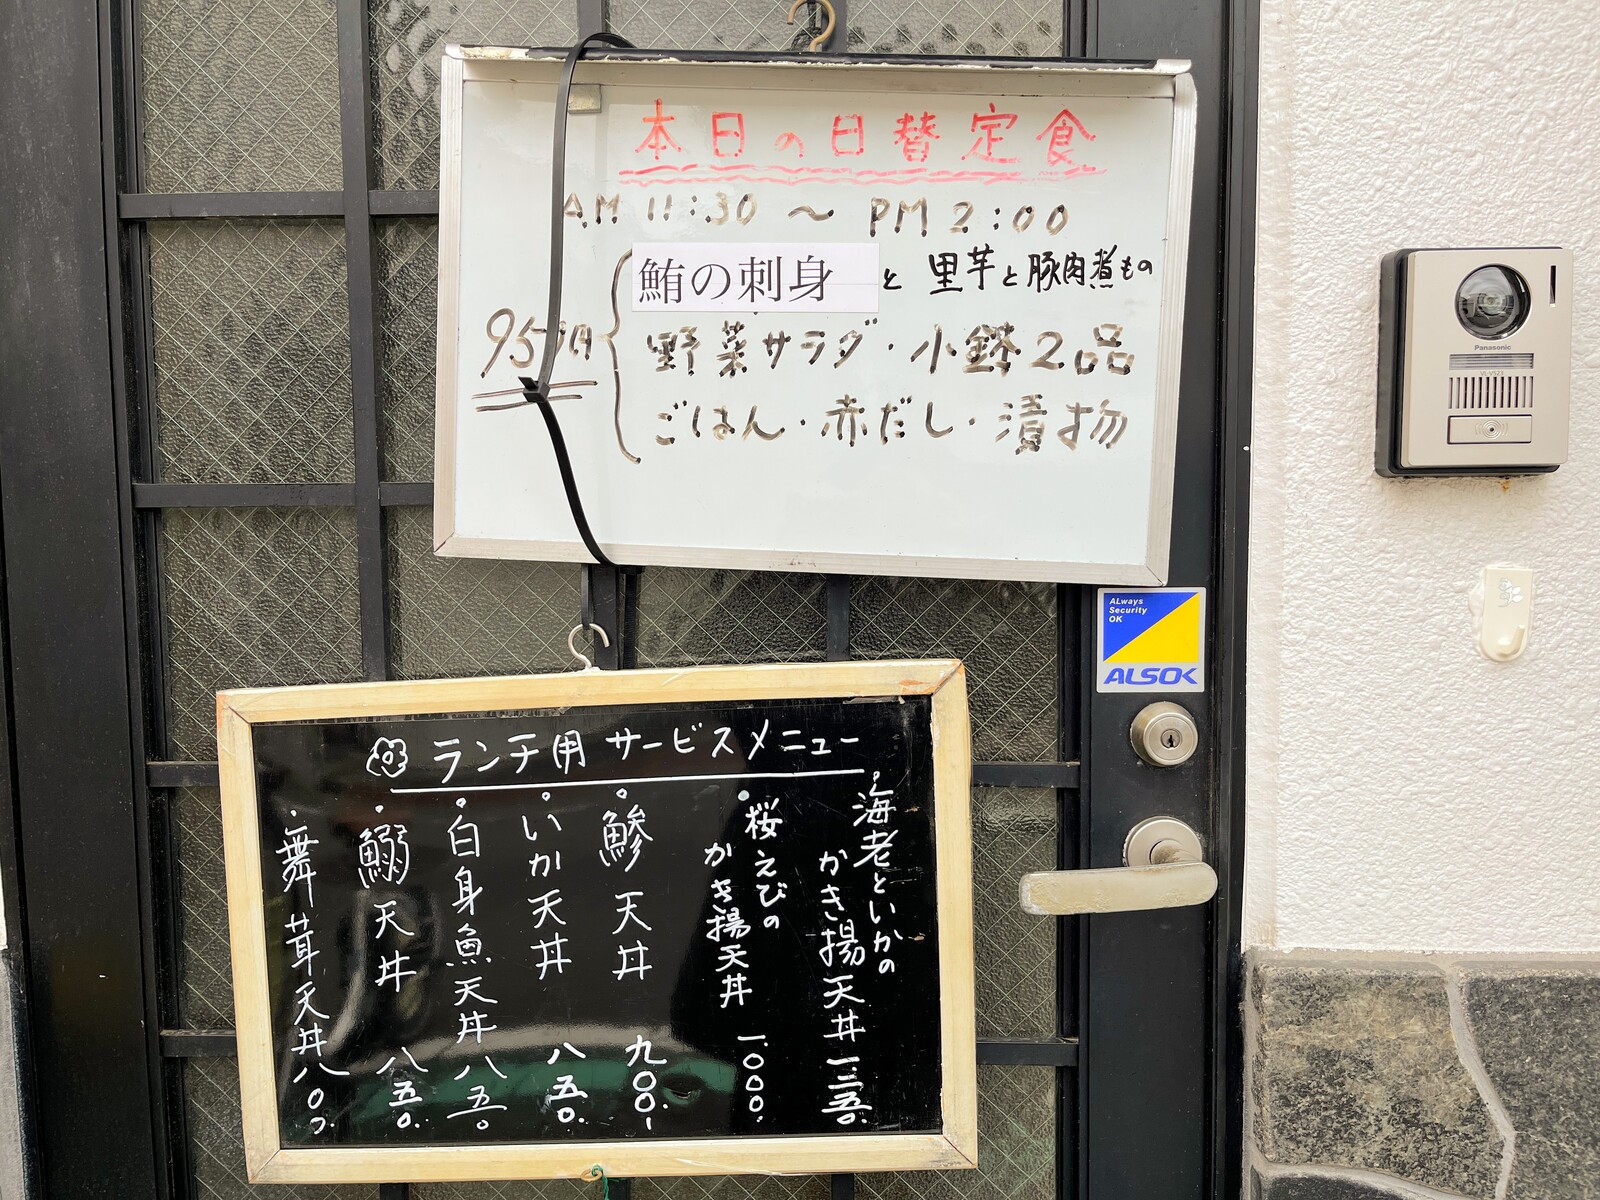 本日の日替定食
AM 11:30 〜 PM 2:00
鮪の刺身 と 里芋と豚肉煮もの
野菜サラダ・小鉢2品
ごはん・赤だし・漬物
ランチ用 サービスメニュー
海老といかの
かき揚天丼 一三五〇
桜えびの
かき揚天丼 一〇〇〇
鯵天丼 九〇〇
いか天丼 八五〇
白身魚天丼 八五〇
鰯天丼 八五〇
舞茸天丼 八〇〇
Panasonic
ALways
Security
OK
ALSOK